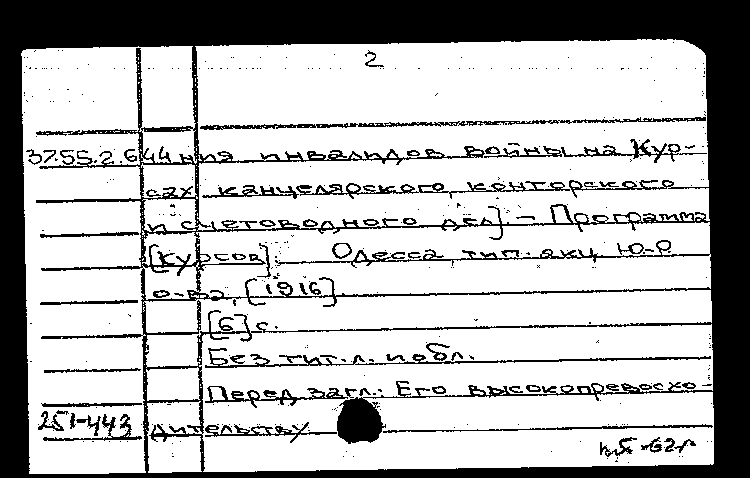 2
37.55.2.644 ния инвалидов войны на Кур-
сах канцелярского, конторского
и счетоводного дел] – Программа
[курсов]. Одесса, тип. акц. Ю-Р
о-ва, [1916].
[6] с.
Без тит. л. и обл.
Перед загл.: Его высокопревосхо-
251-443 дительству